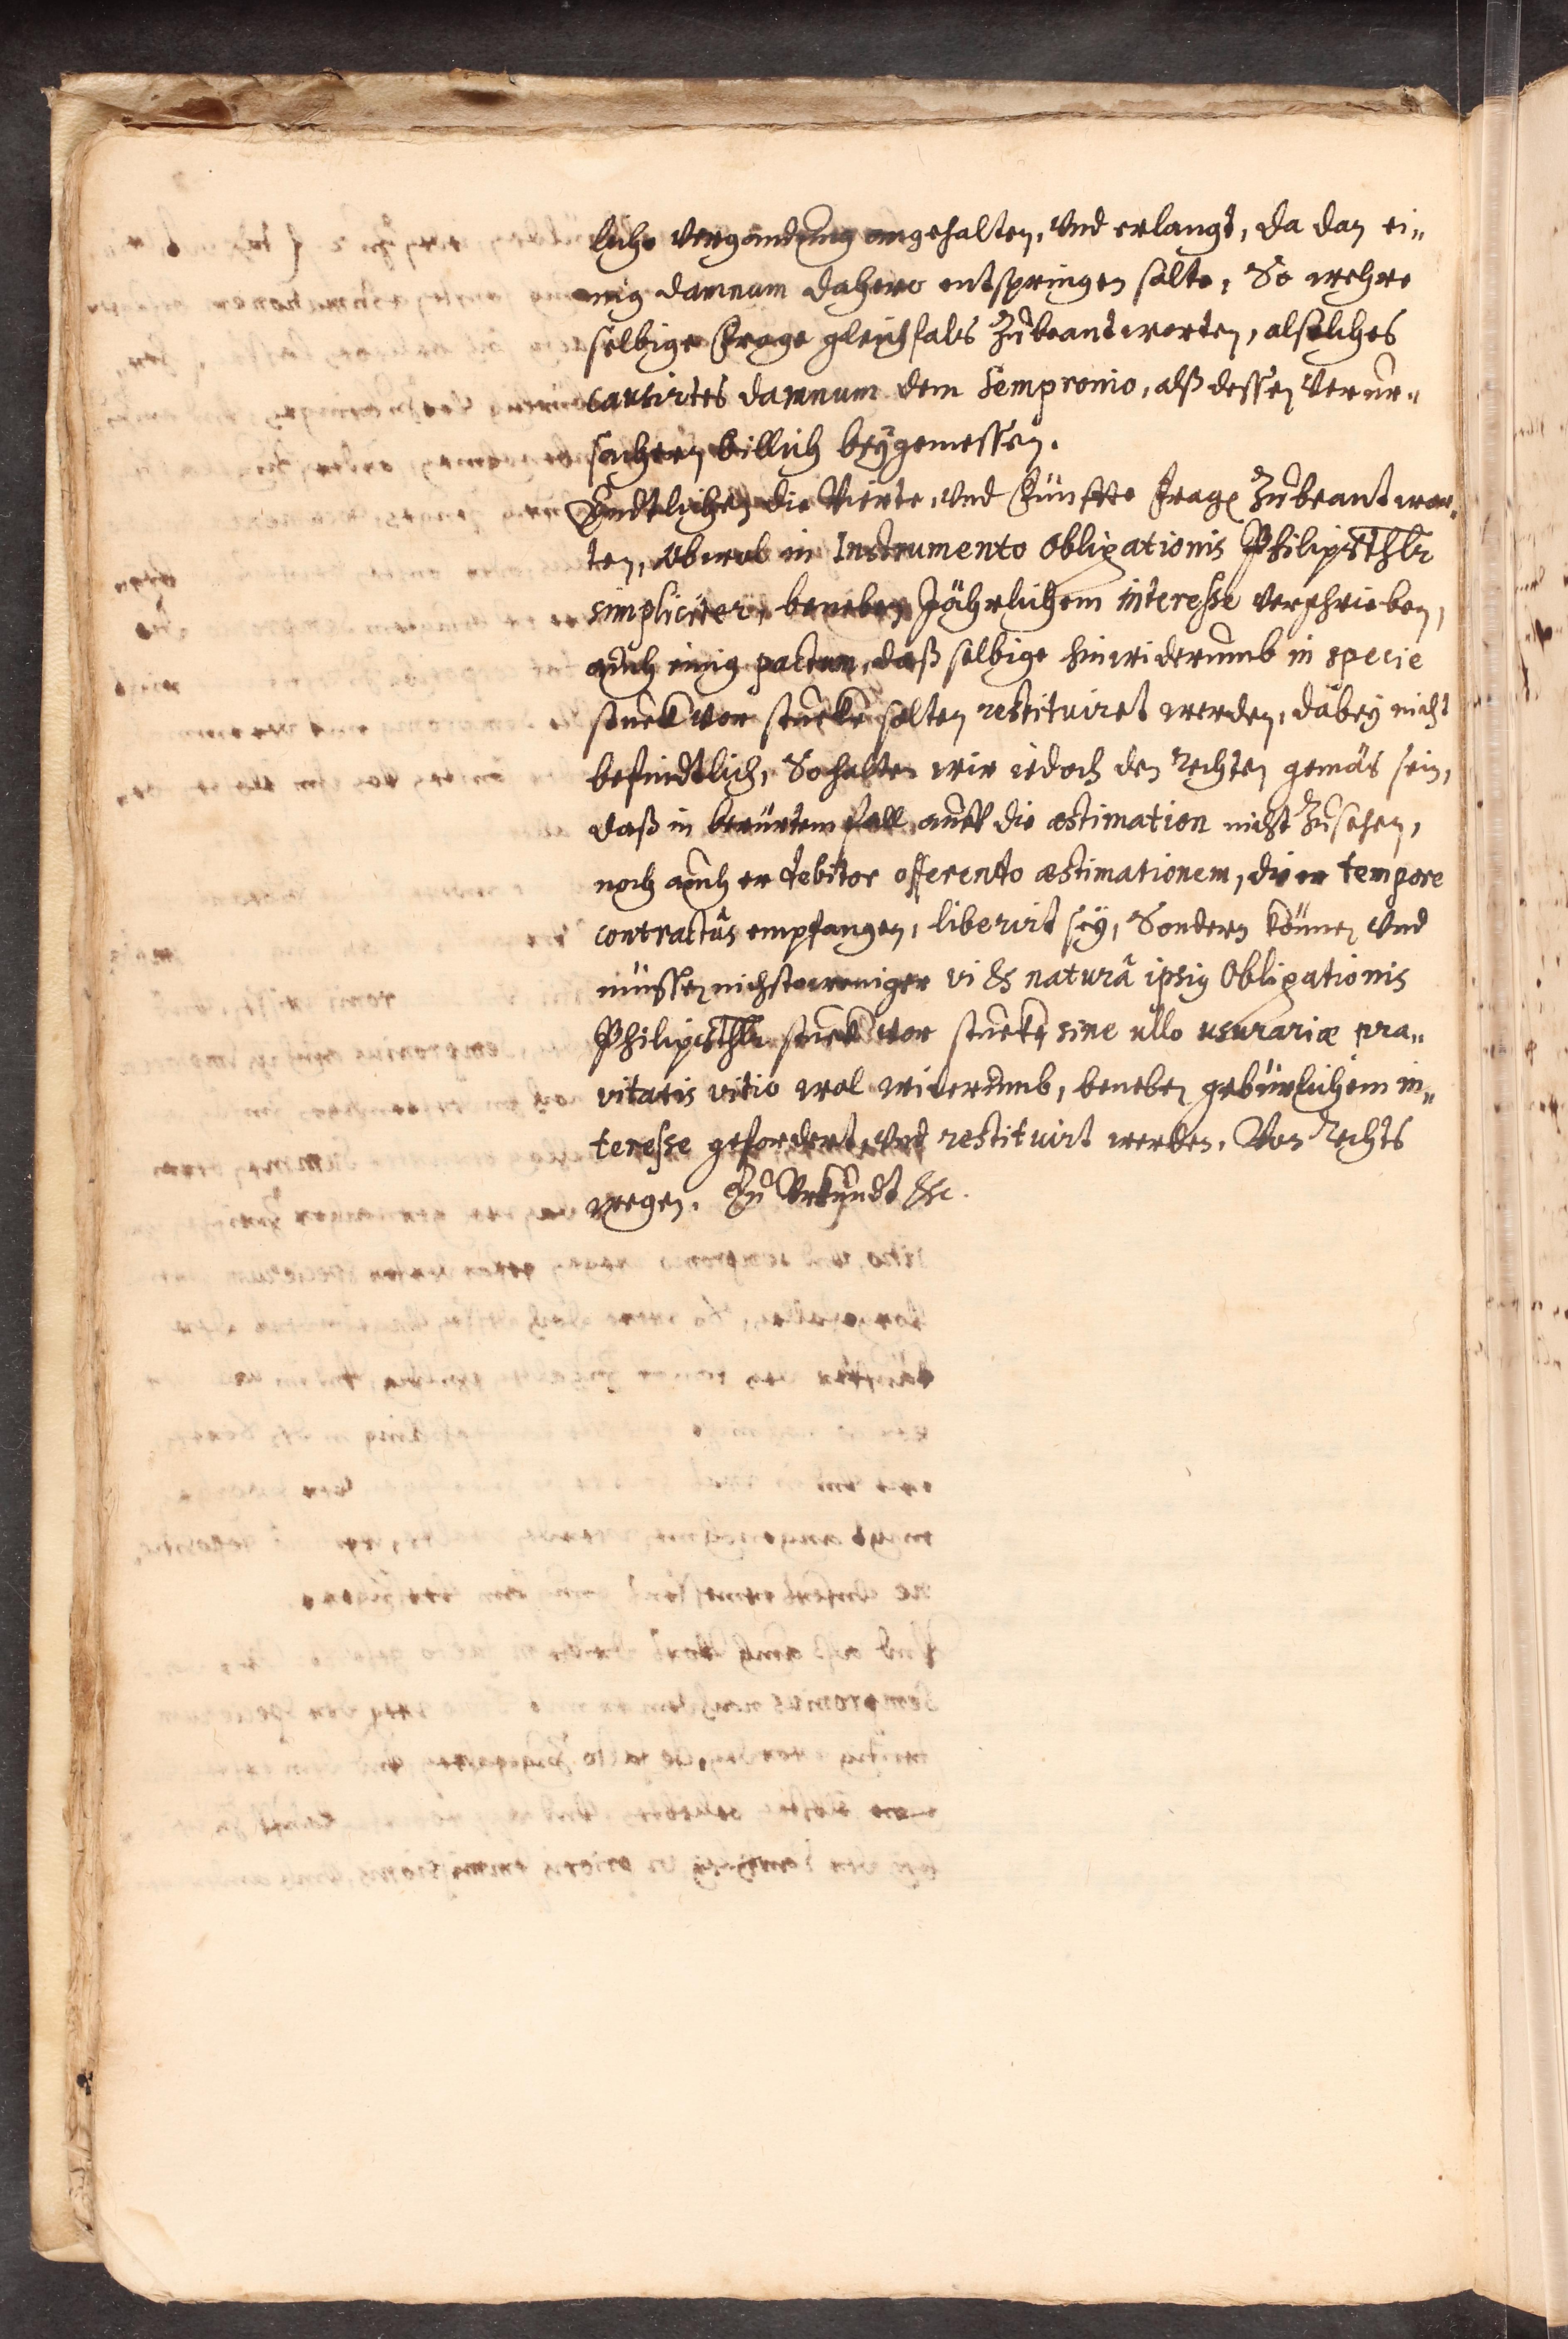 liche vergandung angehalten, vnd erlangt, da dan ei-
nig damnum dahero entspringen solte, So wehre
selbige Frage gleichfals Zu beantworten, al solches
causirtes damnum dem Sempronio, alß dessen verur-
sachern billich beygemessen.
Endtlichen die Vierte, vnd Fünffte Frage Zu beantwor-
ten, obwol in Instrumento Obligationis Philipsthlr
simpliciter, beneben Jährlichem interesse verschrieben,
auch einig pactum, daß selbige hinwiderumb in specie
stuck vor stucke solten restituiret werden, dabey nicht
befindtlich, So halten wir iedoch den Rechten gemäs sein,
daß in berürtem fall auff die æstimation nicht Zusehen,
noch auch er debitor offerendo æstimationem, die er tempore
contractûs empfangen, liberirt sey, Sondern können vnd
müssen nichstoweniger vi & naturâ ipsiq Obligationis
Philipsthlr stuck vor stucke, sine ullo usurariæ pra-
vitatis vitio wol widerumb, beneben gebürlichem in-
teresse gefordert, vnd restituirt werden. Von Rechts
wegen. Zu Vrkundt &c.